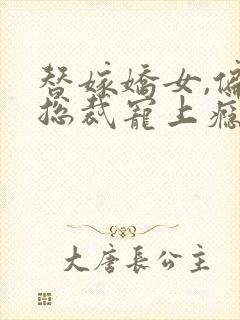 替嫁嬌女,偏
總裁寵上癮
大唐長公主